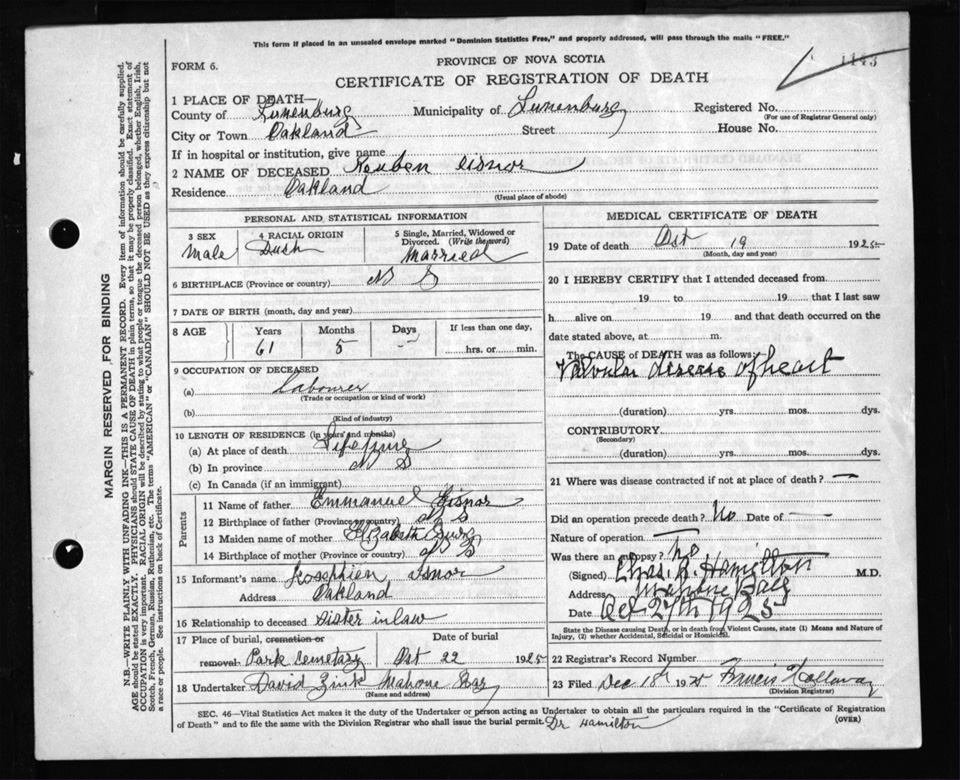 This form if placed in an unsealed envelope marked "Dominion Statistics Free," and properly addressed, will pass through the mails "FREE."
FORM 6.
PROVINCE OF NOVA SCOTIA
CERTIFICATE OF REGISTRATION OF DEATH
1 PLACE OF DEATH—
County of Lunenburg Municipality of Lunenburg Registered No.
(For use of Registrar General only)
City or Town Oakland Street House No.
If in hospital or institution, give name
2 NAME OF DECEASED Reuben Eisnor
Residence Oakland
(Usual place of abode)
PERSONAL AND STATISTICAL INFORMATION
3 SEX 4 RACIAL ORIGIN 5 Single, Married, Widowed or Divorced. (Write the word)
Male Dutch Married
6 BIRTHPLACE (Province or country) N S
7 DATE OF BIRTH (month, day and year)
8 AGE Years Months Days If less than one day,
61 5 — hrs. or min.
9 OCCUPATION OF DECEASED
(a) Labourer
(Trade or occupation or kind of work)
(b)
(Kind of industry)
10 LENGTH OF RESIDENCE (in years and months)
(a) At place of death Lifetime
(b) In province N S
(c) In Canada (if an immigrant)
Parents
11 Name of father Emmanuel Eisnor
12 Birthplace of father (Province or country) N S
13 Maiden name of mother Elizabeth
14 Birthplace of mother (Province or country) N S
15 Informant's name Eisnor
Address Oakland
16 Relationship to deceased Sister in law
17 Place of burial, cremation or removal Park Cemetary
Date of burial Oct 22 1925
18 Undertaker David Zink Mahone Bay
(Name and address)
MEDICAL CERTIFICATE OF DEATH
19 Date of death Oct 19 1925
(Month, day and year)
20 I HEREBY CERTIFY that I attended deceased from
19 to 19 that I last saw
h alive on 19 and that death occurred on the
date stated above, at m.
The CAUSE of DEATH was as follows:
Valvular disease of heart
(duration) yrs. mos. dys.
CONTRIBUTORY
(Secondary)
(duration) yrs. mos. dys.
21 Where was disease contracted if not at place of death? —
Did an operation precede death? No Date of —
Nature of operation —
Was there an autopsy? No
(Signed) Chas. A. Hamilton M.D.
Address Mahone Bay
Date Oct 27th 1925
State the Disease causing Death, or in death from Violent Causes, state (1) Means and Nature of
Injury, (2) whether Accidental, Suicidal or Homicidal.
22 Registrar's Record Number
23 Filed Dec 18th 1925 Francis Holloway
(Division Registrar)
SEC. 46—Vital Statistics Act makes it the duty of the Undertaker or person acting as Undertaker to obtain all the particulars required in the "Certificate of Registration
of Death" and to file the same with the Division Registrar who shall issue the burial permit. Dr Hamilton
(OVER)
MARGIN RESERVED FOR BINDING
N.B.—WRITE PLAINLY WITH UNFADING INK—THIS IS A PERMANENT RECORD. Every item of information should be carefully supplied.
AGE should be stated EXACTLY. PHYSICIANS should STATE CAUSE OF DEATH in plain terms, so that it may be properly classified. Exact statement of
OCCUPATION is very important. RACIAL ORIGIN will be described by stating to what people or tongue the deceased person belonged, whether English, Irish,
Scotch, French, German, Russian, Ruthenian, etc. The terms "AMERICAN" or "CANADIAN" SHOULD NOT BE USED as they express citizenship but not
a race or people. See instructions on back of Certificate.